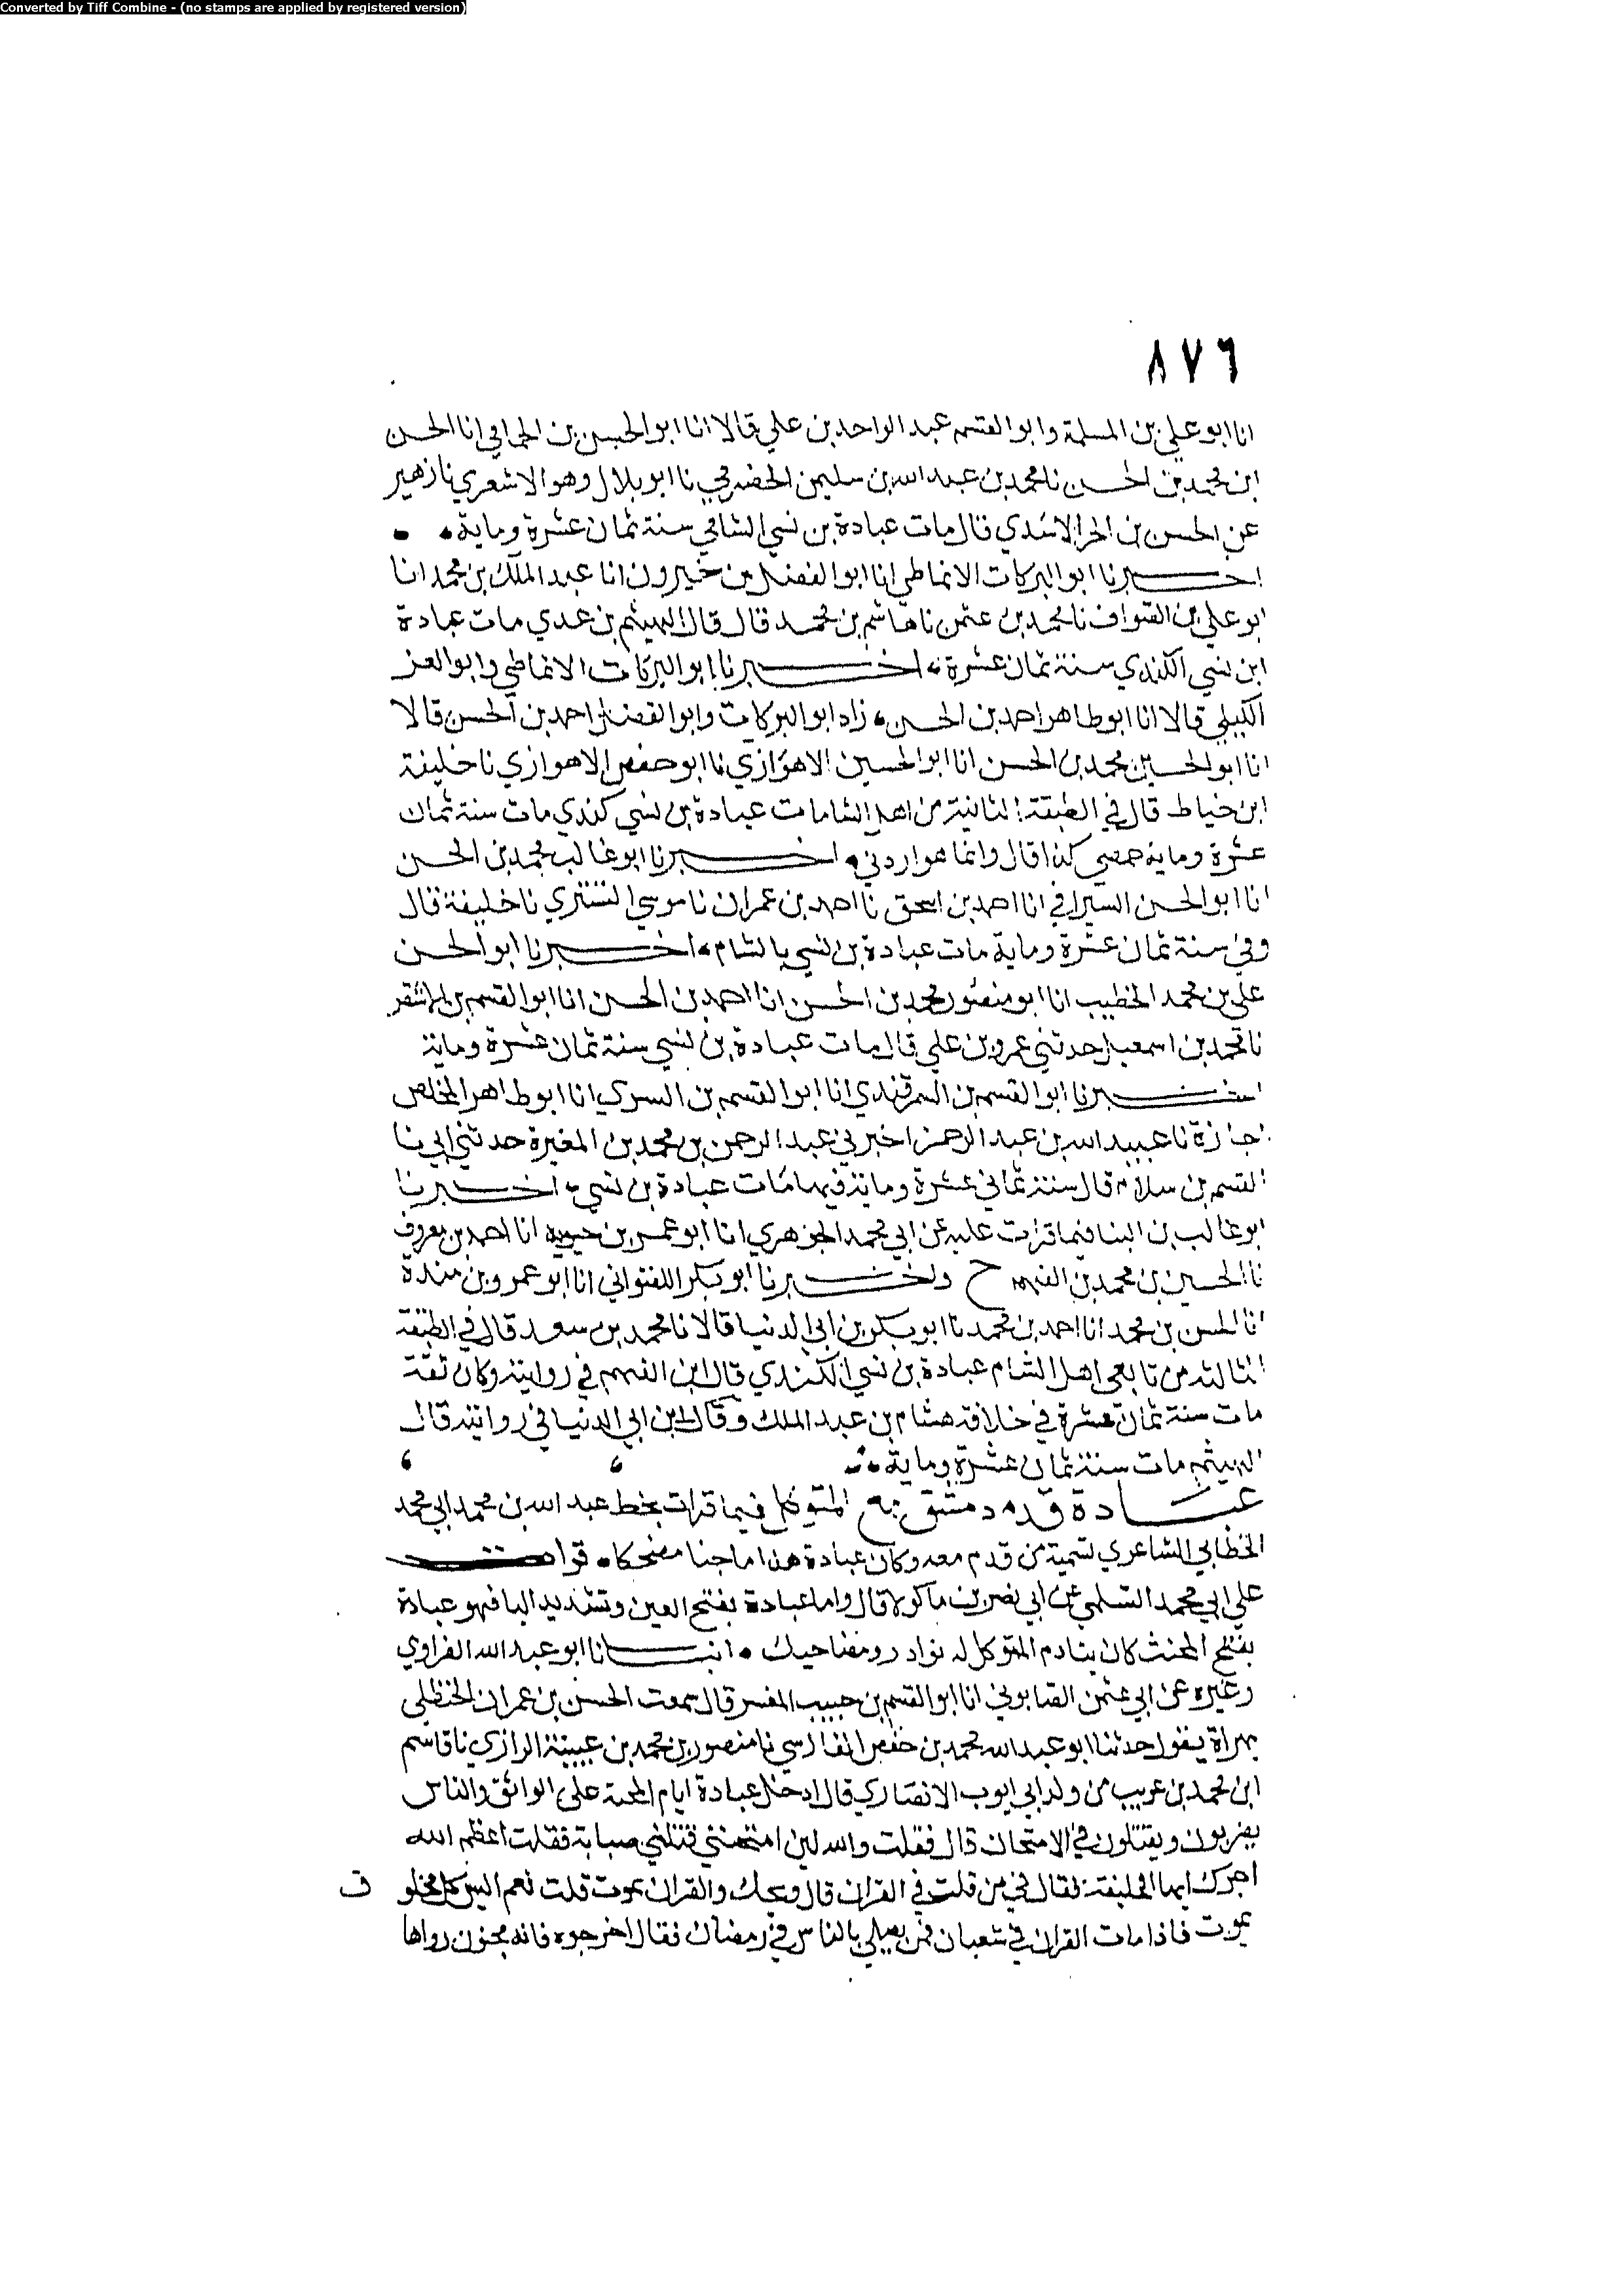 Converted by Tiff Combine - (no stamps are applied by registered version)
٨٧٦
انا ابو علي بن المسلمة وابو القسم عبد الواحد بن علي قالا انا ابو الحسين بن الحمامي انا الحسن
ابن محمد بن الحسن نا محمد بن عبد الله بن سليمن الحضرمي نا ابو بلال وهو الاشعري نا زهير
عن الحسن بن الحر الاسدي قال مات عبادة بن نسي الشامي سنة ثمان عشرة وماية
اخبرنا ابو البركات الانماطي انا ابو الفضل بن خيرون انا عبد الملك بن محمد انا
ابو علي بن الصواف نا محمد بن عثمن نا هاشم بن محمد قال قال الهيثم بن عدي مات عبادة
ابن نسي الكندي سنة ثمان عشرة اخبرنا ابو البركات الانماطي وابو العز
الكيلي قالا انا ابو طاهر احمد بن الحسن زاد ابو البركات وابو الفضل احمد بن الحسن قالا
انا ابو الحسين محمد بن الحسن انا ابو الحسين الاهوازي نا ابو حفص الاهوازي نا خليفة
ابن خياط قال في الطبقة الثانية من اهل الشامات عبادة بن نسي كندي مات سنة ثمان
عشرة وماية حمصي كذا قال وانما هو اردني اخبرنا ابو غالب محمد بن الحسن
انا ابو الحسن السيرافي انا احمد بن اسحق نا احمد بن عمران نا موسى التستري نا خليفة قال
وفي سنة ثمان عشرة وماية مات عبادة بن نسي بالشام اخبرنا ابو الحسن
علي بن محمد الخطيب انا ابو منصور محمد بن الحسن انا احمد بن الحسين انا ابو القسم بن الاشقر
نا محمد بن اسمعيل حدثني عمرو بن علي قال مات عبادة بن نسي سنة ثمان عشرة وماية
اخبرنا ابو القسم بن السمرقندي انا ابو القسم بن السري انا ابو طاهر المخلص
اجازة نا عبيد الله بن عبد الرحمن اخبرني عبد الرحمن بن محمد بن المغيرة حدثني ابي نا
القسم بن سلام قال سنة ثماني عشرة وماية فيها مات عبادة بن نسي اخبرنا
ابو غالب بن البنا فيما قرات عليه عن ابي محمد الجوهري انا ابو عمر بن حيويه انا احمد بن معروف
نا الحسين بن محمد بن الفهم ح واخبرنا ابو بكر اللفتواني انا ابو عمرو بن مندة
انا الحسن بن محمد انا احمد بن محمد نا ابو بكر بن ابي الدنيا قالا نا محمد بن سعد قال في الطبقة
الثالثة من تابعي اهل الشام عبادة بن نسي الكندي قال ابن الفهم في روايته وكان ثقة
مات سنة ثمان عشرة في خلافة هشام بن عبد الملك وقال ابن ابي الدنيا في روايته قال
الهيثم مات سنة ثمان عشرة وماية
عبادة قدم دمشق مع المتوكل فيما قرات بخط عبد الله بن محمد ابي محمد
الخطابي الشاعري تسمية من قدم معه وكان عبادة هذا ماجنا مضحكا قرات
علي ابي محمد السلمي عن ابي نصر بن ماكولا قال واما عبادة بفتح العين وتشديد البا فهو عبادة
بفتح المخنث كان ينادم المتوكل له نوادر ومضاحيك انبانا ابو عبد الله الفراوي
وغيره عن ابي عثمن الصابوني انا ابو القسم بن حبيب المفسر قال سمعت الحسن بن عمران الحنظلي
بهراة يقول حدثنا ابو عبد الله محمد بن حفص الفارسي نا منصور بن محمد بن عيينة الرازي نا قاسم
ابن محمد بن عريب من ولد ابي ايوب الانصاري قال ادخل عبادة ايام المحنة على الواثق والناس
يضربون ويقتلون في الامتحان قال فقلت والله لين امتحنني قتلني صبابة فقلت اعظم الله
اجرك ايها الخليفة فقال في من قلت في القران قال ويحك والقران يموت قلت نعم اليس كل مخلوق
يموت فاذا مات القران في شعبان فمن يصلي بالناس في رمضان فقال اخرجوه فانه مجنون رواها